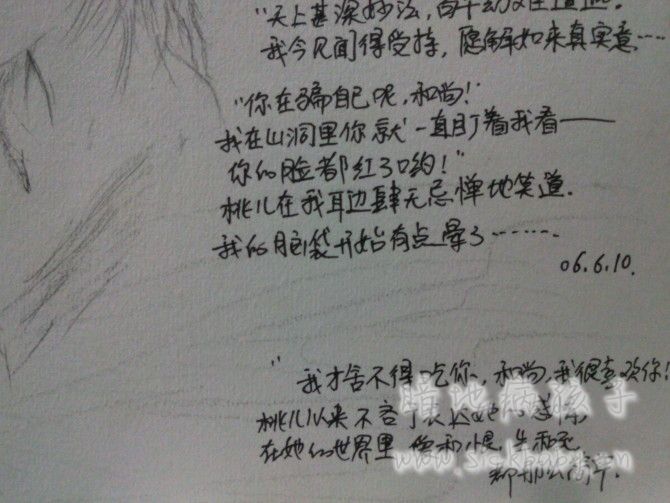 "无上甚深妙法，百千劫难遭遇。
我今见闻得受持，愿解如来真实意……
"你在骗自己呢，和尚！
我在山洞里你就一直盯着我看——
你的脸都红了哟！"
桃儿在我耳边肆无忌惮地笑道.
我的脑袋开始有点晕了……
06.6.10.
"我才舍不得吃你，和尚，我很喜欢你！
桃儿从来不
在她的世界里 爱和恨 生和死
都那么
暗地病孩子